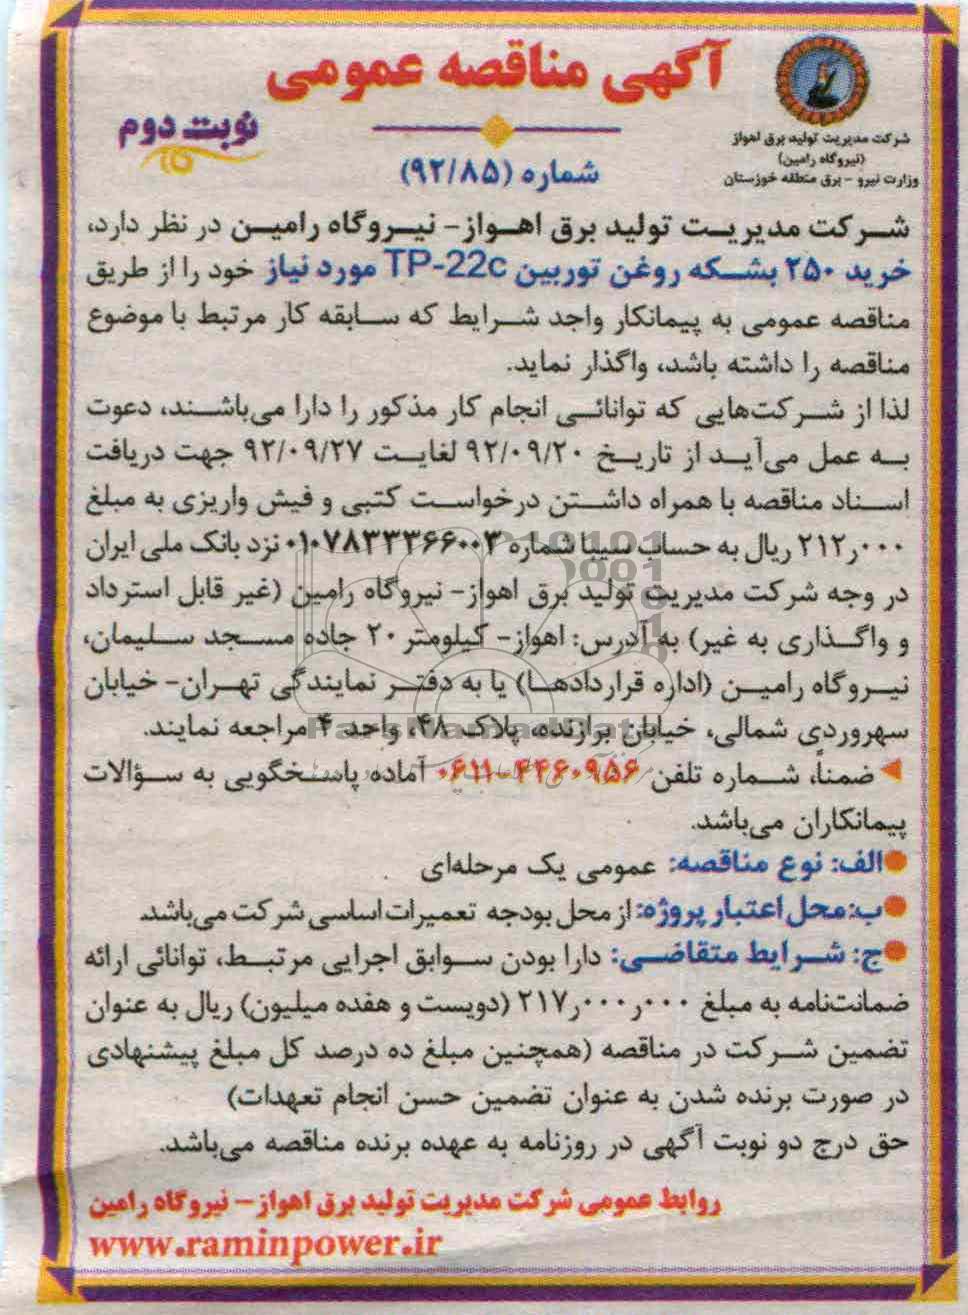 آگهی مناقصه عمومی
نوبت دوم
شماره (۹۲/۸۵)
شرکت مدیریت تولید برق اهواز
(نیروگاه رامین)
وزارت نیرو - برق منطقه خوزستان
شرکت مدیریت تولید برق اهواز- نیروگاه رامین در نظر دارد،
خرید ۲۵۰ بشکه روغن توربین TP-22c مورد نیاز خود را از طریق
مناقصه عمومی به پیمانکار واجد شرایط که سابقه کار مرتبط با موضوع
مناقصه را داشته باشد، واگذار نماید.
لذا از شرکت‌هایی که توانائی انجام کار مذکور را دارا می‌باشند، دعوت
به عمل می‌آید از تاریخ ۹۲/۰۹/۲۰ لغایت ۹۲/۰۹/۲۷ جهت دریافت
اسناد مناقصه با همراه داشتن درخواست کتبی و فیش واریزی به مبلغ
۲۱۲٫۰۰۰ ریال به حساب سیبا شماره ۰۱۰۷۸۳۳۳۶۶۰۰۳ نزد بانک ملی ایران
در وجه شرکت مدیریت تولید برق اهواز- نیروگاه رامین (غیر قابل استرداد
و واگذاری به غیر) به آدرس: اهواز- کیلومتر ۲۰ جاده مسجد سلیمان،
نیروگاه رامین (اداره قراردادها) یا به دفتر نمایندگی تهران- خیابان
سهروردی شمالی، خیابان برازنده، پلاک ۴۸، واحد ۴ مراجعه نمایند.
ضمناً، شماره تلفن ۴۴۶۰۹۵۶-۰۶۱۱ آماده پاسخگویی به سؤالات
پیمانکاران می‌باشد.
الف: نوع مناقصه: عمومی یک مرحله‌ای
ب: محل اعتبار پروژه: از محل بودجه تعمیرات اساسی شرکت می‌باشد.
ج: شرایط متقاضی: دارا بودن سوابق اجرایی مرتبط، توانائی ارائه
ضمانت‌نامه به مبلغ ۲۱۷٫۰۰۰٫۰۰۰ (دویست و هفده میلیون) ریال به عنوان
تضمین شرکت در مناقصه (همچنین مبلغ ده درصد کل مبلغ پیشنهادی
در صورت برنده شدن به عنوان تضمین حسن انجام تعهدات)
حق درج دو نوبت آگهی در روزنامه به عهده برنده مناقصه می‌باشد.
روابط عمومی شرکت مدیریت تولید برق اهواز- نیروگاه رامین
www.raminpower.ir
ParsNamadData